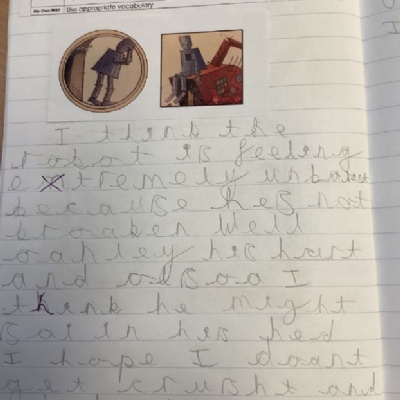 Use appropriate vocabulary
I think the
robot is feeling
extremely
because hes not
broaken Well
oanley his hart
and olsoa I
think he might
Sai in his hed
I hope I doant
get crusht and